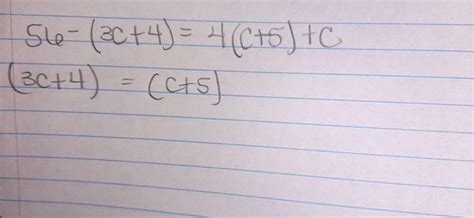 56-(3c+4)=4(c+5)+c
(3c+4) = (c+5)